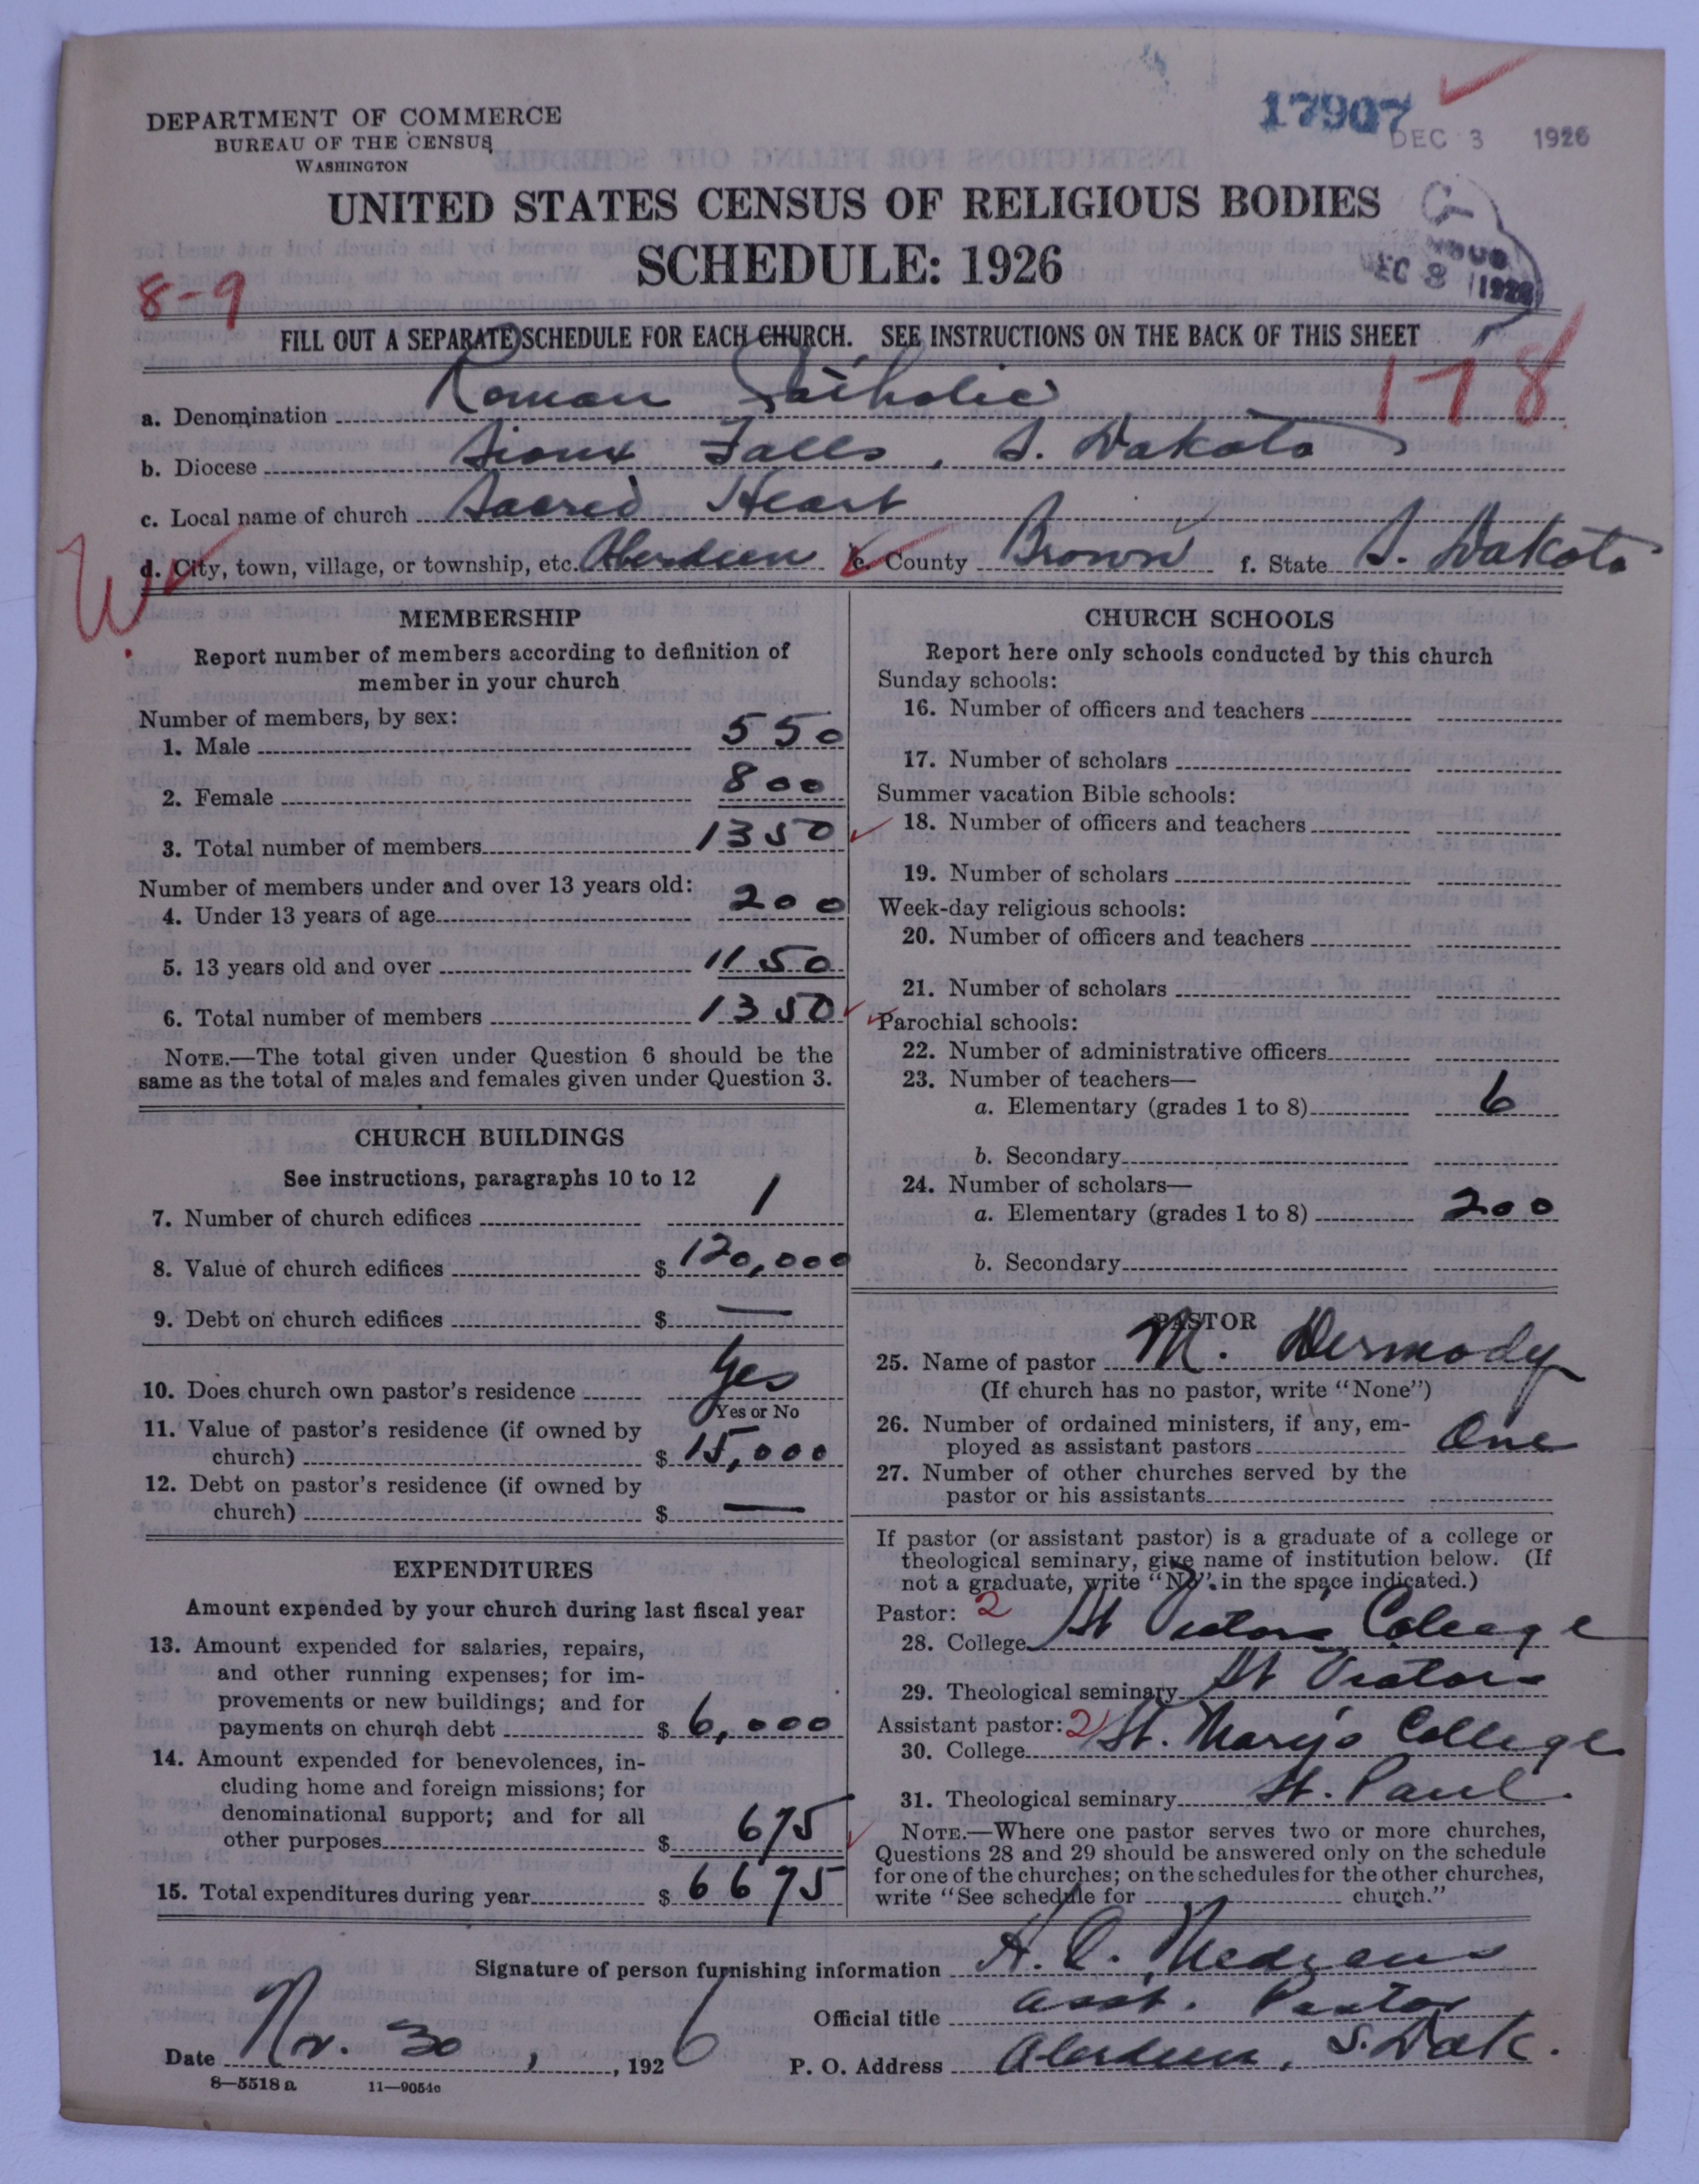 17907
DEC 3 1926
DEPARTMENT OF COMMERCE
BUREAU OF THE CENSUS
WASHINGTON
UNITED STATES CENSUS OF RELIGIOUS BODIES
SCHEDULE: 1926
8-9
FILL OUT A SEPARATE SCHEDULE FOR EACH CHURCH. SEE INSTRUCTIONS ON THE BACK OF THIS SHEET
178
a. Denomination Roman Catholic
b. Diocese Sioux Falls, S. Dakota
c. Local name of church Sacred Heart
d. City, town, village, or township, etc. Aberdeen e. County Brown f. State S. Dakota
MEMBERSHIP
Report number of members according to definition of
member in your church
Number of members, by sex:
1. Male 550
2. Female 800
3. Total number of members 1350
Number of members under and over 13 years old:
4. Under 13 years of age 200
5. 13 years old and over 1150
6. Total number of members 1350
NOTE.—The total given under Question 6 should be the
same as the total of males and females given under Question 3.
CHURCH BUILDINGS
See instructions, paragraphs 10 to 12
7. Number of church edifices 1
8. Value of church edifices $ 120,000
9. Debt on church edifices $ —
10. Does church own pastor's residence Yes
Yes or No
11. Value of pastor's residence (if owned by
church) $ 15,000
12. Debt on pastor's residence (if owned by
church) $ —
EXPENDITURES
Amount expended by your church during last fiscal year
13. Amount expended for salaries, repairs,
and other running expenses; for im-
provements or new buildings; and for
payments on church debt $ 6,000
14. Amount expended for benevolences, in-
cluding home and foreign missions; for
denominational support; and for all
other purposes $ 675
15. Total expenditures during year $ 6675
CHURCH SCHOOLS
Report here only schools conducted by this church
Sunday schools:
16. Number of officers and teachers
17. Number of scholars
Summer vacation Bible schools:
18. Number of officers and teachers
19. Number of scholars
Week-day religious schools:
20. Number of officers and teachers
21. Number of scholars
Parochial schools:
22. Number of administrative officers
23. Number of teachers—
a. Elementary (grades 1 to 8) 6
b. Secondary
24. Number of scholars—
a. Elementary (grades 1 to 8) 200
b. Secondary
PASTOR
25. Name of pastor M. Dermody
(If church has no pastor, write "None")
26. Number of ordained ministers, if any, em-
ployed as assistant pastors One
27. Number of other churches served by the
pastor or his assistants
If pastor (or assistant pastor) is a graduate of a college or
theological seminary, give name of institution below. (If
not a graduate, write "No" in the space indicated.)
Pastor: 2
28. College St Viators College
29. Theological seminary St Viators
Assistant pastor: 2
30. College St. Mary's College
31. Theological seminary St. Paul.
NOTE.—Where one pastor serves two or more churches,
Questions 28 and 29 should be answered only on the schedule
for one of the churches; on the schedules for the other churches,
write "See schedule for church."
Signature of person furnishing information A. C.
Official title Asst. Pastor
Date Nov. 30, 1926 P. O. Address Aberdeen, S. Dak.
8—5518a 11—9054c